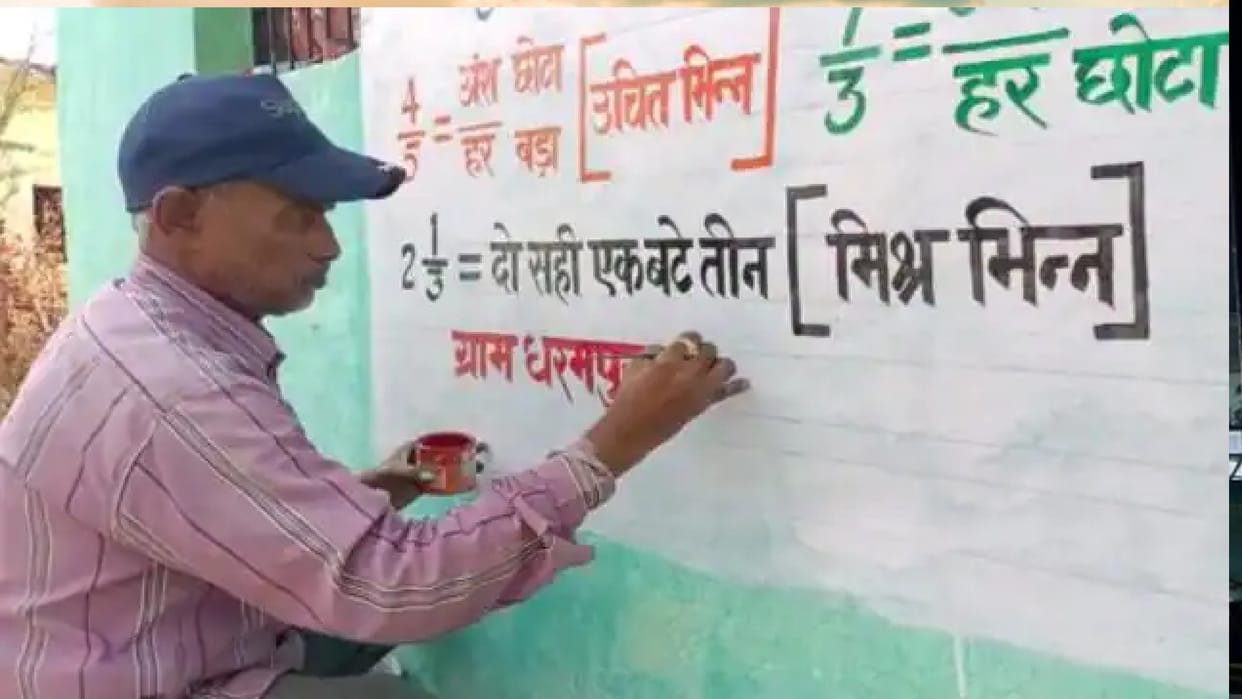 4/5 = अंश छोटा / हर बड़ा [उचित भिन्न]
/3 = / हर छोटा
2 1/3 = दो सही एक बटे तीन [मिश्र भिन्न]
ग्राम धरमपु